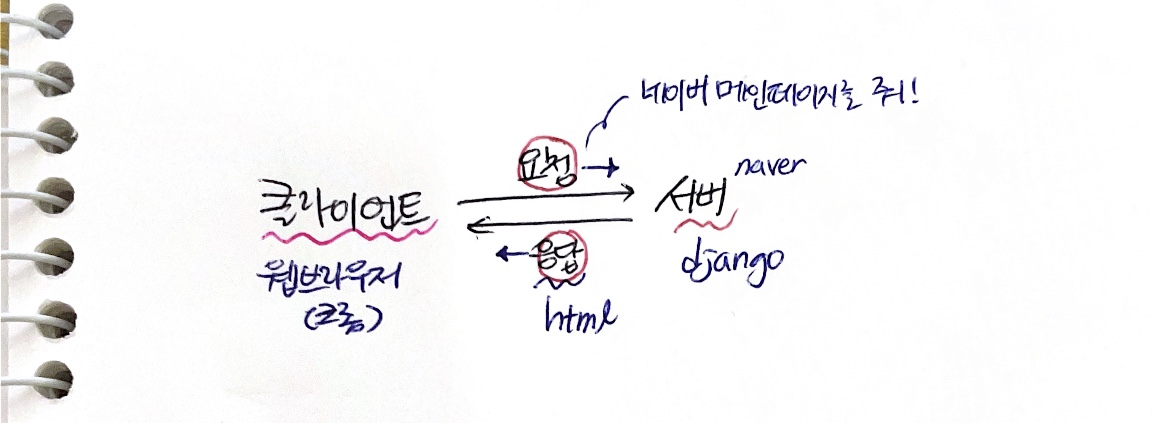 네이버 메인페이지를 줘!
요청
naver
클라이언트
서버
응답
django
웹브라우저
(크롬)
html